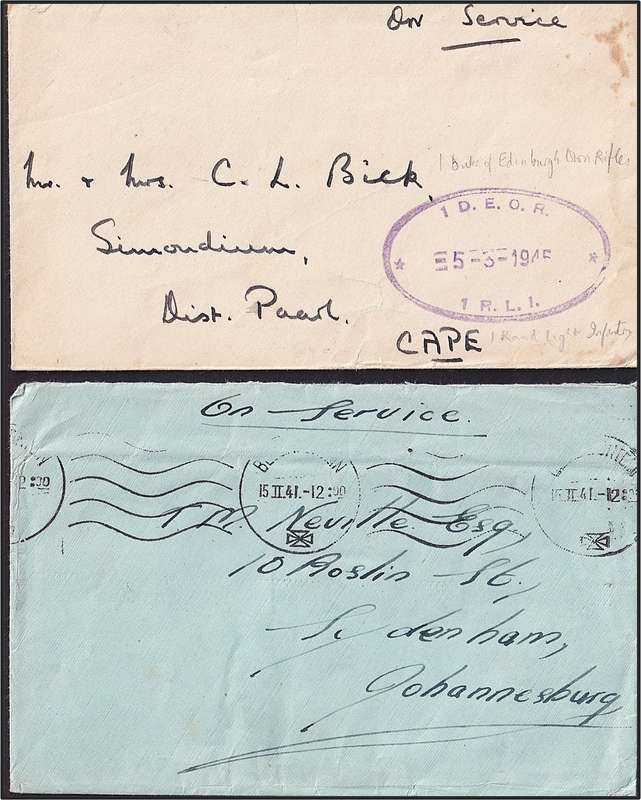 On Service
Mr. & Mrs. C. L. Bilk,
1 Duke of Edinburgh Own Rifles
Simondium,
1 D. E. O. R.
5-3-1945
Dist. Paarl.
1 R. L. I.
CAPE
1 Rand Light Infantry
On Service.
15 II 41.-12:00
15 II 41.-12:00
T.M. Neville Esq,
10 Roslin St,
Sydenham,
Johannesburg